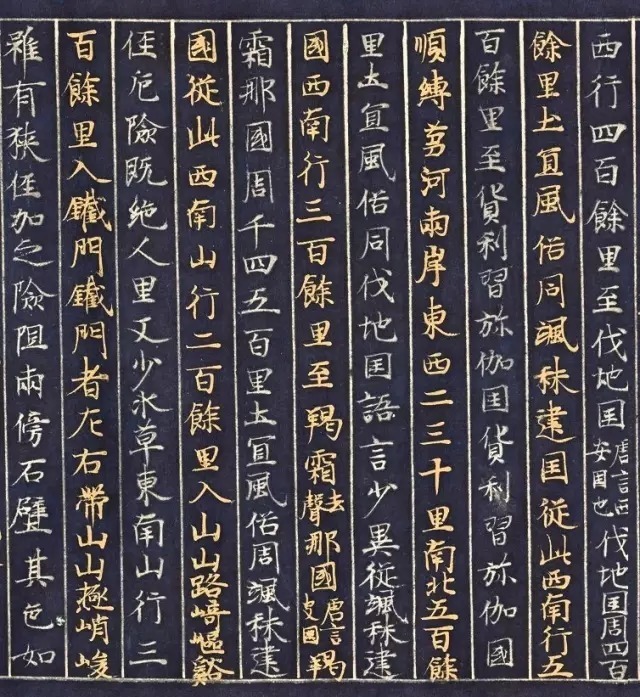 西行四百餘里至伐地囯唐言西安囯也伐地囯周四百
餘里土宜風俗同颯秣建囯從此西南行五
百餘里至貨利習弥伽囯貨利習弥伽國
順縛芻河兩岸東西二三十里南北五百餘
里土宜風俗同伐地囯語言少異從颯秣建
國西南行三百餘里至羯霜去聲那國唐言史國羯
霜那國周千四五百里土宜風俗周颯秣建
國從此西南山行二百餘里入山山路崎嶇谿
徑危險既絶人里又少水草東南山行三
百餘里入鐵門鐵門者左右帶山山極峭峻
雖有狹徑加之險阻兩傍石壁其色如